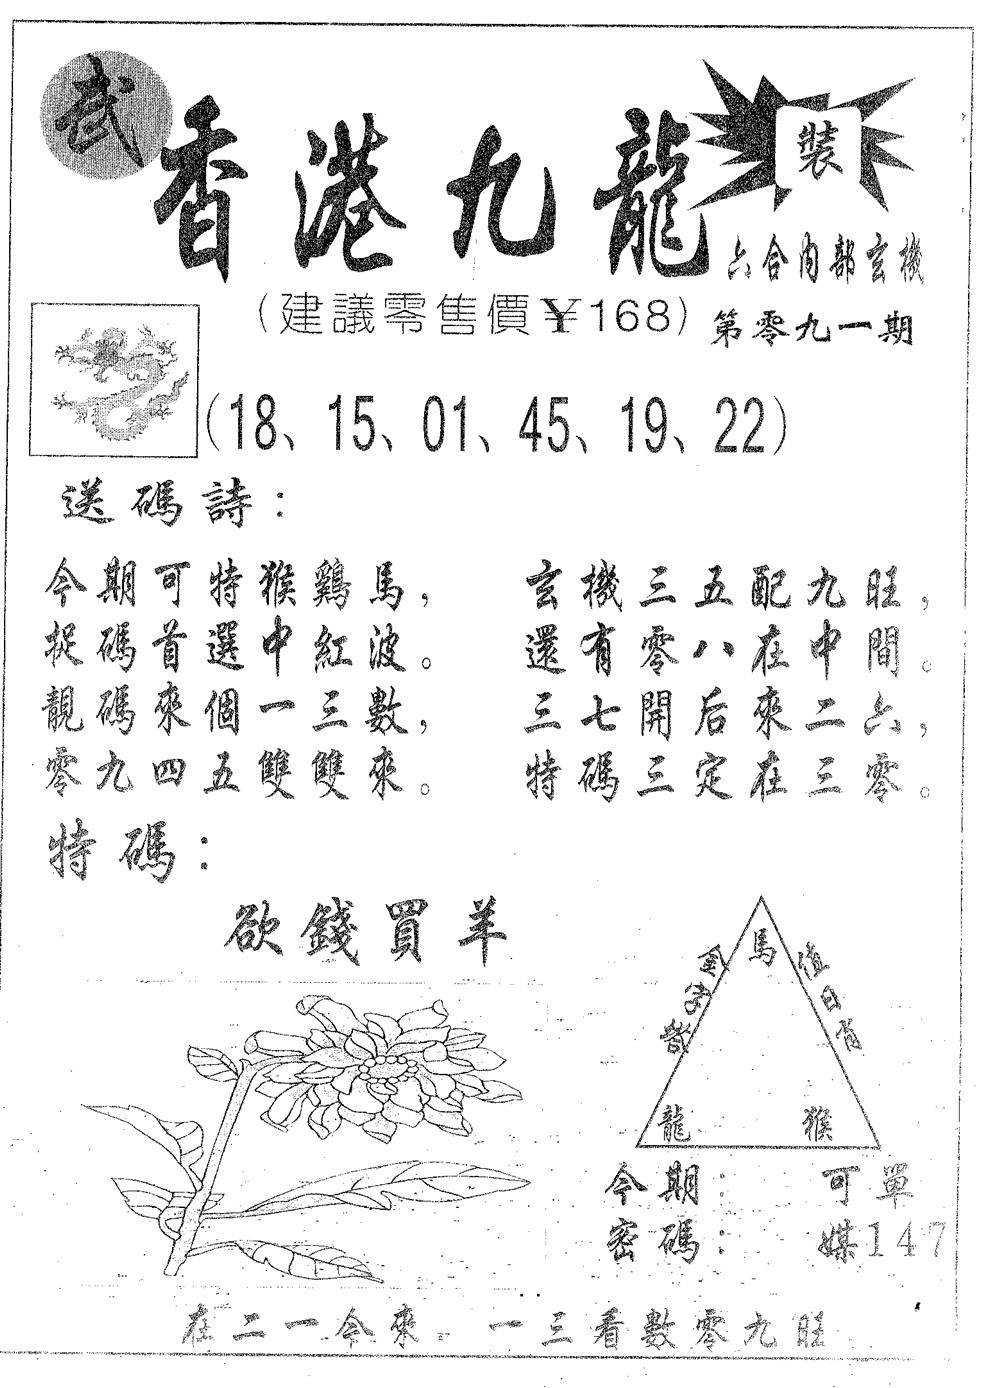 武
香港九龍
裝
六合内部玄機
(建議零售價¥168)
第零九一期
(18、15、01、45、19、22)
送碼詩：
今期可特猴鷄馬，
捉碼首選中紅波。
靚碼來個一三數，
零九四五雙雙來。
玄機三五配九旺，
還有零八在中間。
三七開后來二六，
特碼三定在三零。
特碼：
欲錢買羊
馬
金字塔
值日肖
龍
猴
今期： 可單
密碼： 媒147
在二一今來。一三看數零九旺